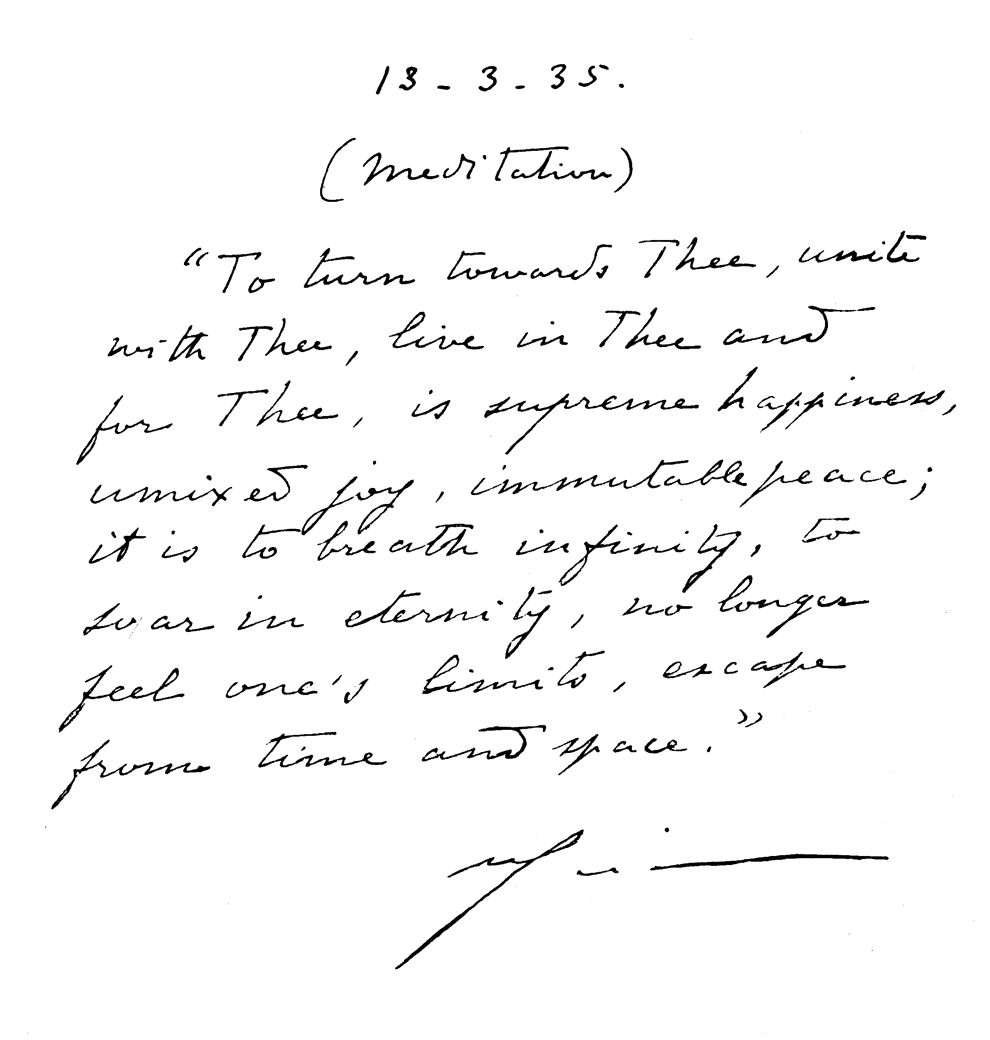 13 - 3 - 35.
(Meditation)
"To turn towards Thee, unite
with Thee, live in Thee and
for Thee, is supreme happiness,
unmixed joy, immutable peace;
it is to breath infinity, to
soar in eternity, no longer
feel one's limits, escape
from time and space."